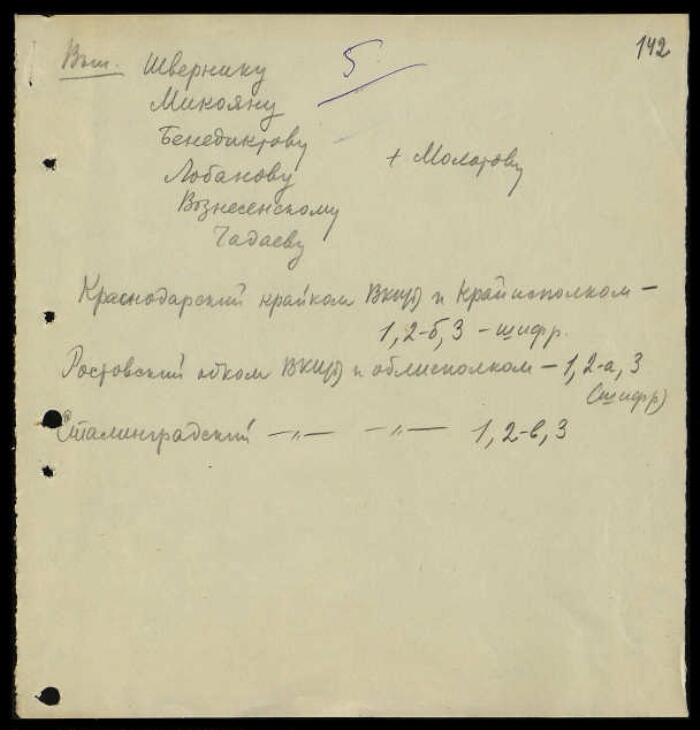 142
Вып. Швернику 5
Микояну
Бенедиктову
+ Молотову
Лобанову
Вознесенскому
Чадаеву
Краснодарский крайком ВКП(б) и Крайисполком –
1, 2-б, 3 – шифр.
Ростовский обком ВКП(б) и облисполком – 1, 2-а, 3
(шифр)
Сталинградский –„– –„– 1, 2-в, 3